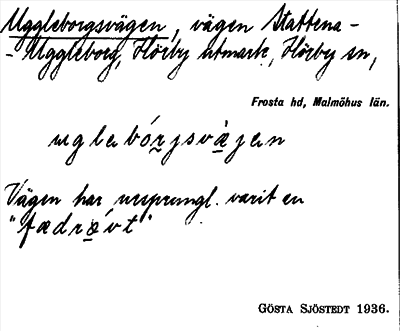 Uggleborgsvägen, vägen Stattena -
- Uggleborg, Hörby utmark, Hörby sn,
Frosta hd, Malmöhus län.
uglabórjsvàjan
Vägen har ursprungl. varit en
"fædrǽvt"
GÖSTA SJÖSTEDT 1936.